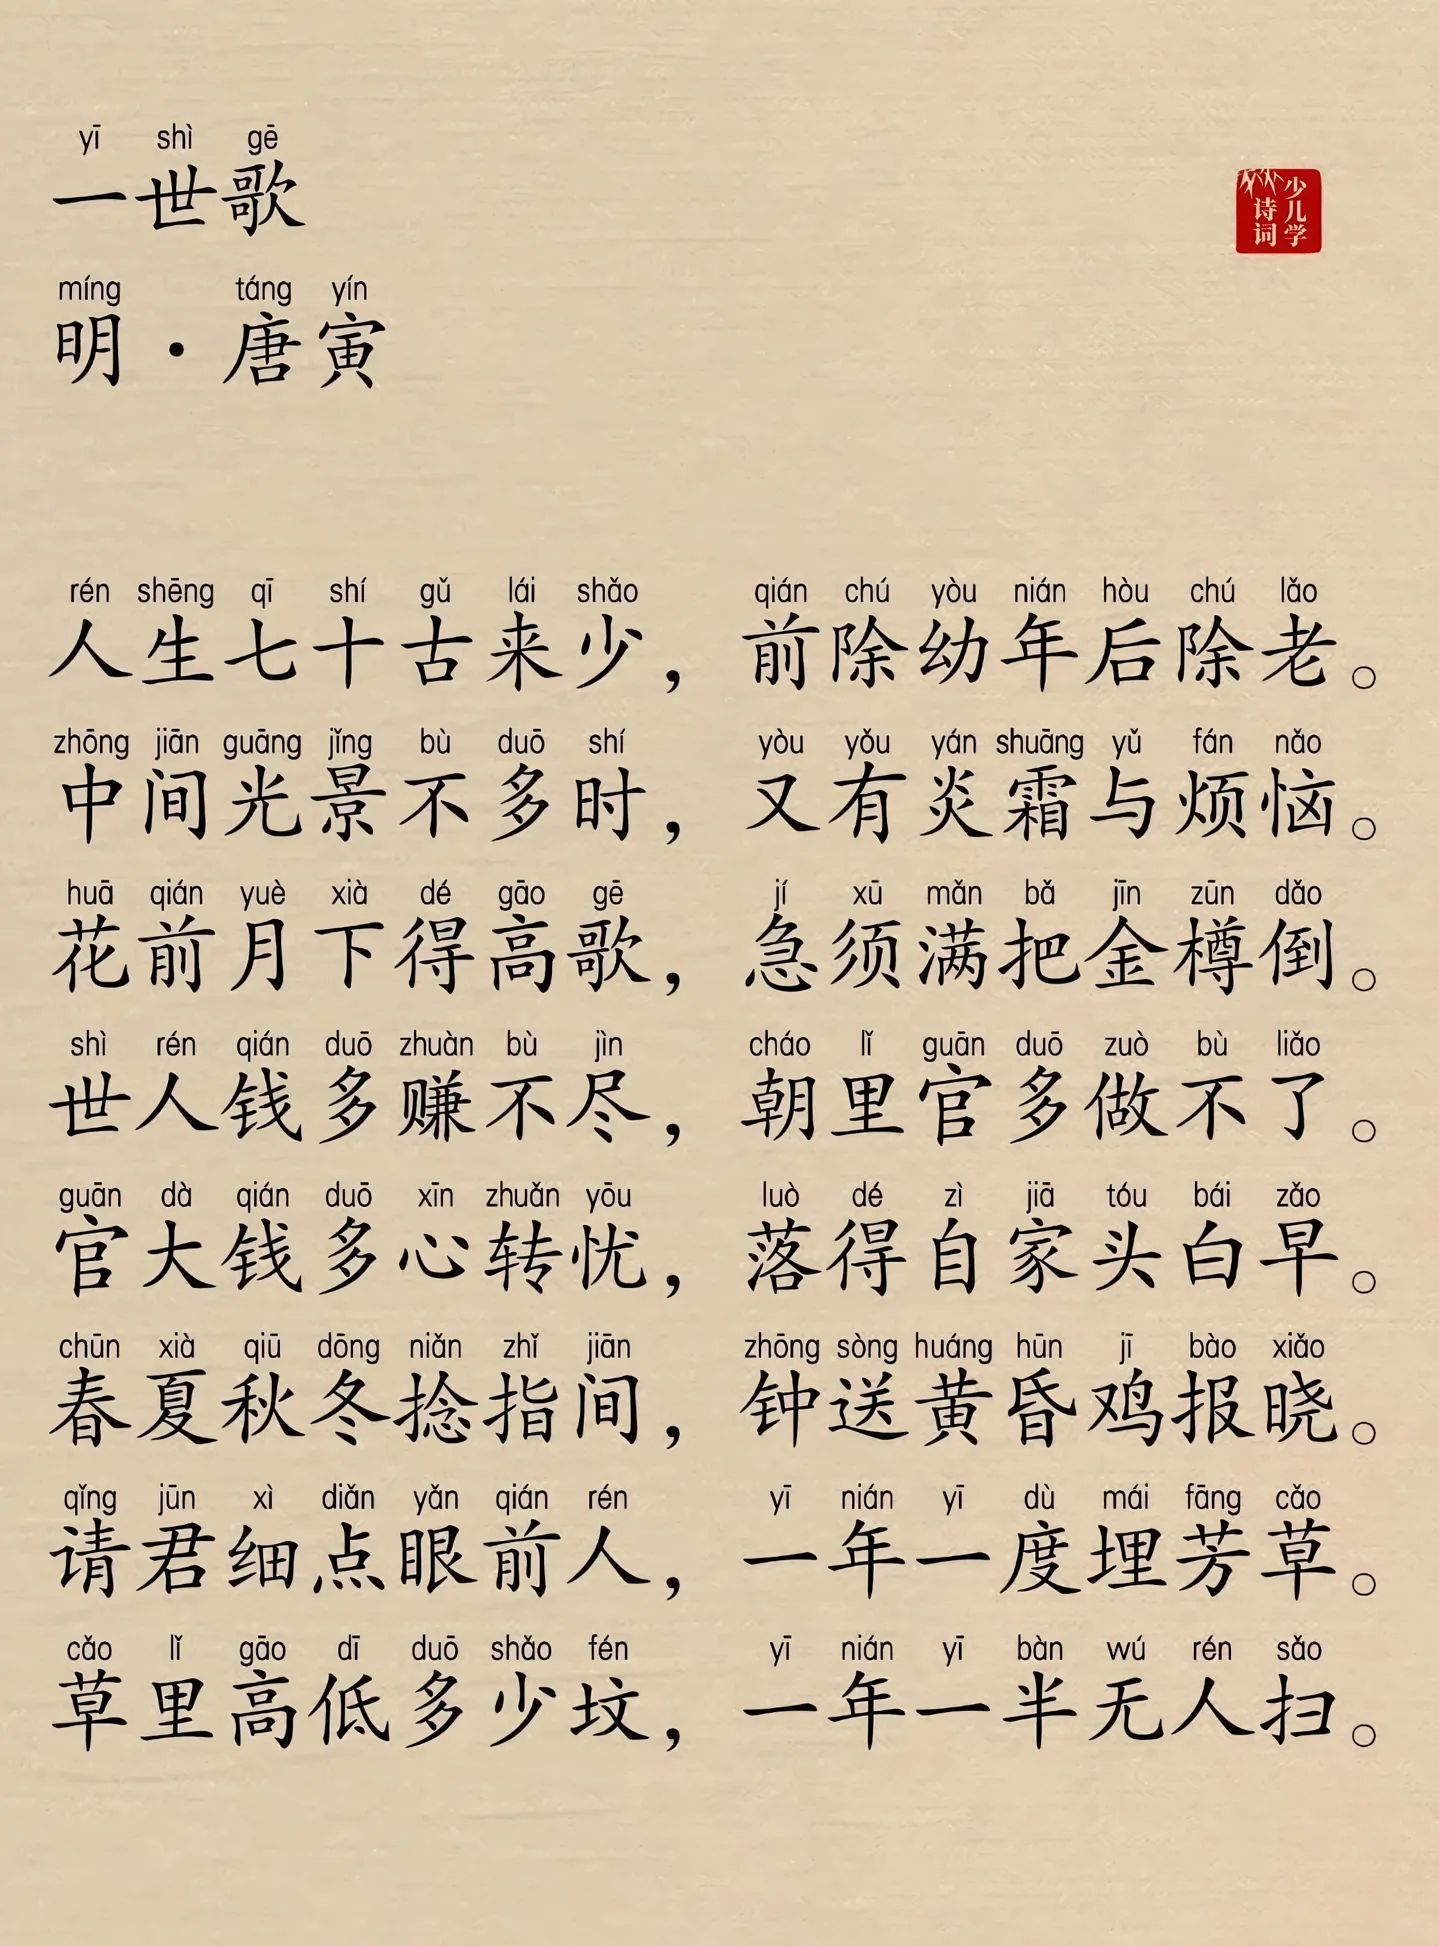 yī shì gē
一世歌
少儿学
诗词
míng táng yín
明·唐寅
rén shēng qī shí gǔ lái shǎo qián chú yòu nián hòu chú lǎo
人生七十古来少，前除幼年后除老。
zhōng jiān guāng jǐng bù duō shí yòu yǒu yán shuāng yǔ fán nǎo
中间光景不多时，又有炎霜与烦恼。
huā qián yuè xià dé gāo gē jí xū mǎn bǎ jīn zūn dǎo
花前月下得高歌，急须满把金樽倒。
shì rén qián duō zhuàn bù jìn cháo lǐ guān duō zuò bù liǎo
世人钱多赚不尽，朝里官多做不了。
guān dà qián duō xīn zhuǎn yōu luò dé zì jiā tóu bái zǎo
官大钱多心转忧，落得自家头白早。
chūn xià qiū dōng niǎn zhǐ jiān zhōng sòng huáng hūn jī bào xiǎo
春夏秋冬捻指间，钟送黄昏鸡报晓。
qǐng jūn xì diǎn yǎn qián rén yī nián yī dù mái fāng cǎo
请君细点眼前人，一年一度埋芳草。
cǎo lǐ gāo dī duō shǎo fén yī nián yī bàn wú rén sǎo
草里高低多少坟，一年一半无人扫。